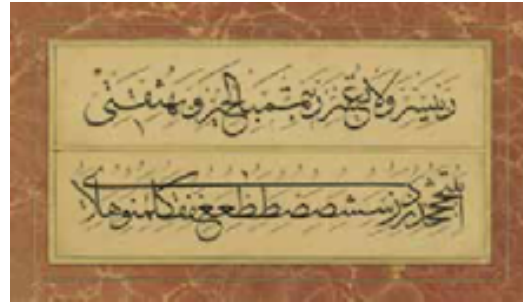 رب يسر ولا تعسر رب تمم بالخير وبه ثقتي
ابتثجحخدذرزسشصضطظعغفقكلمنوهلاي